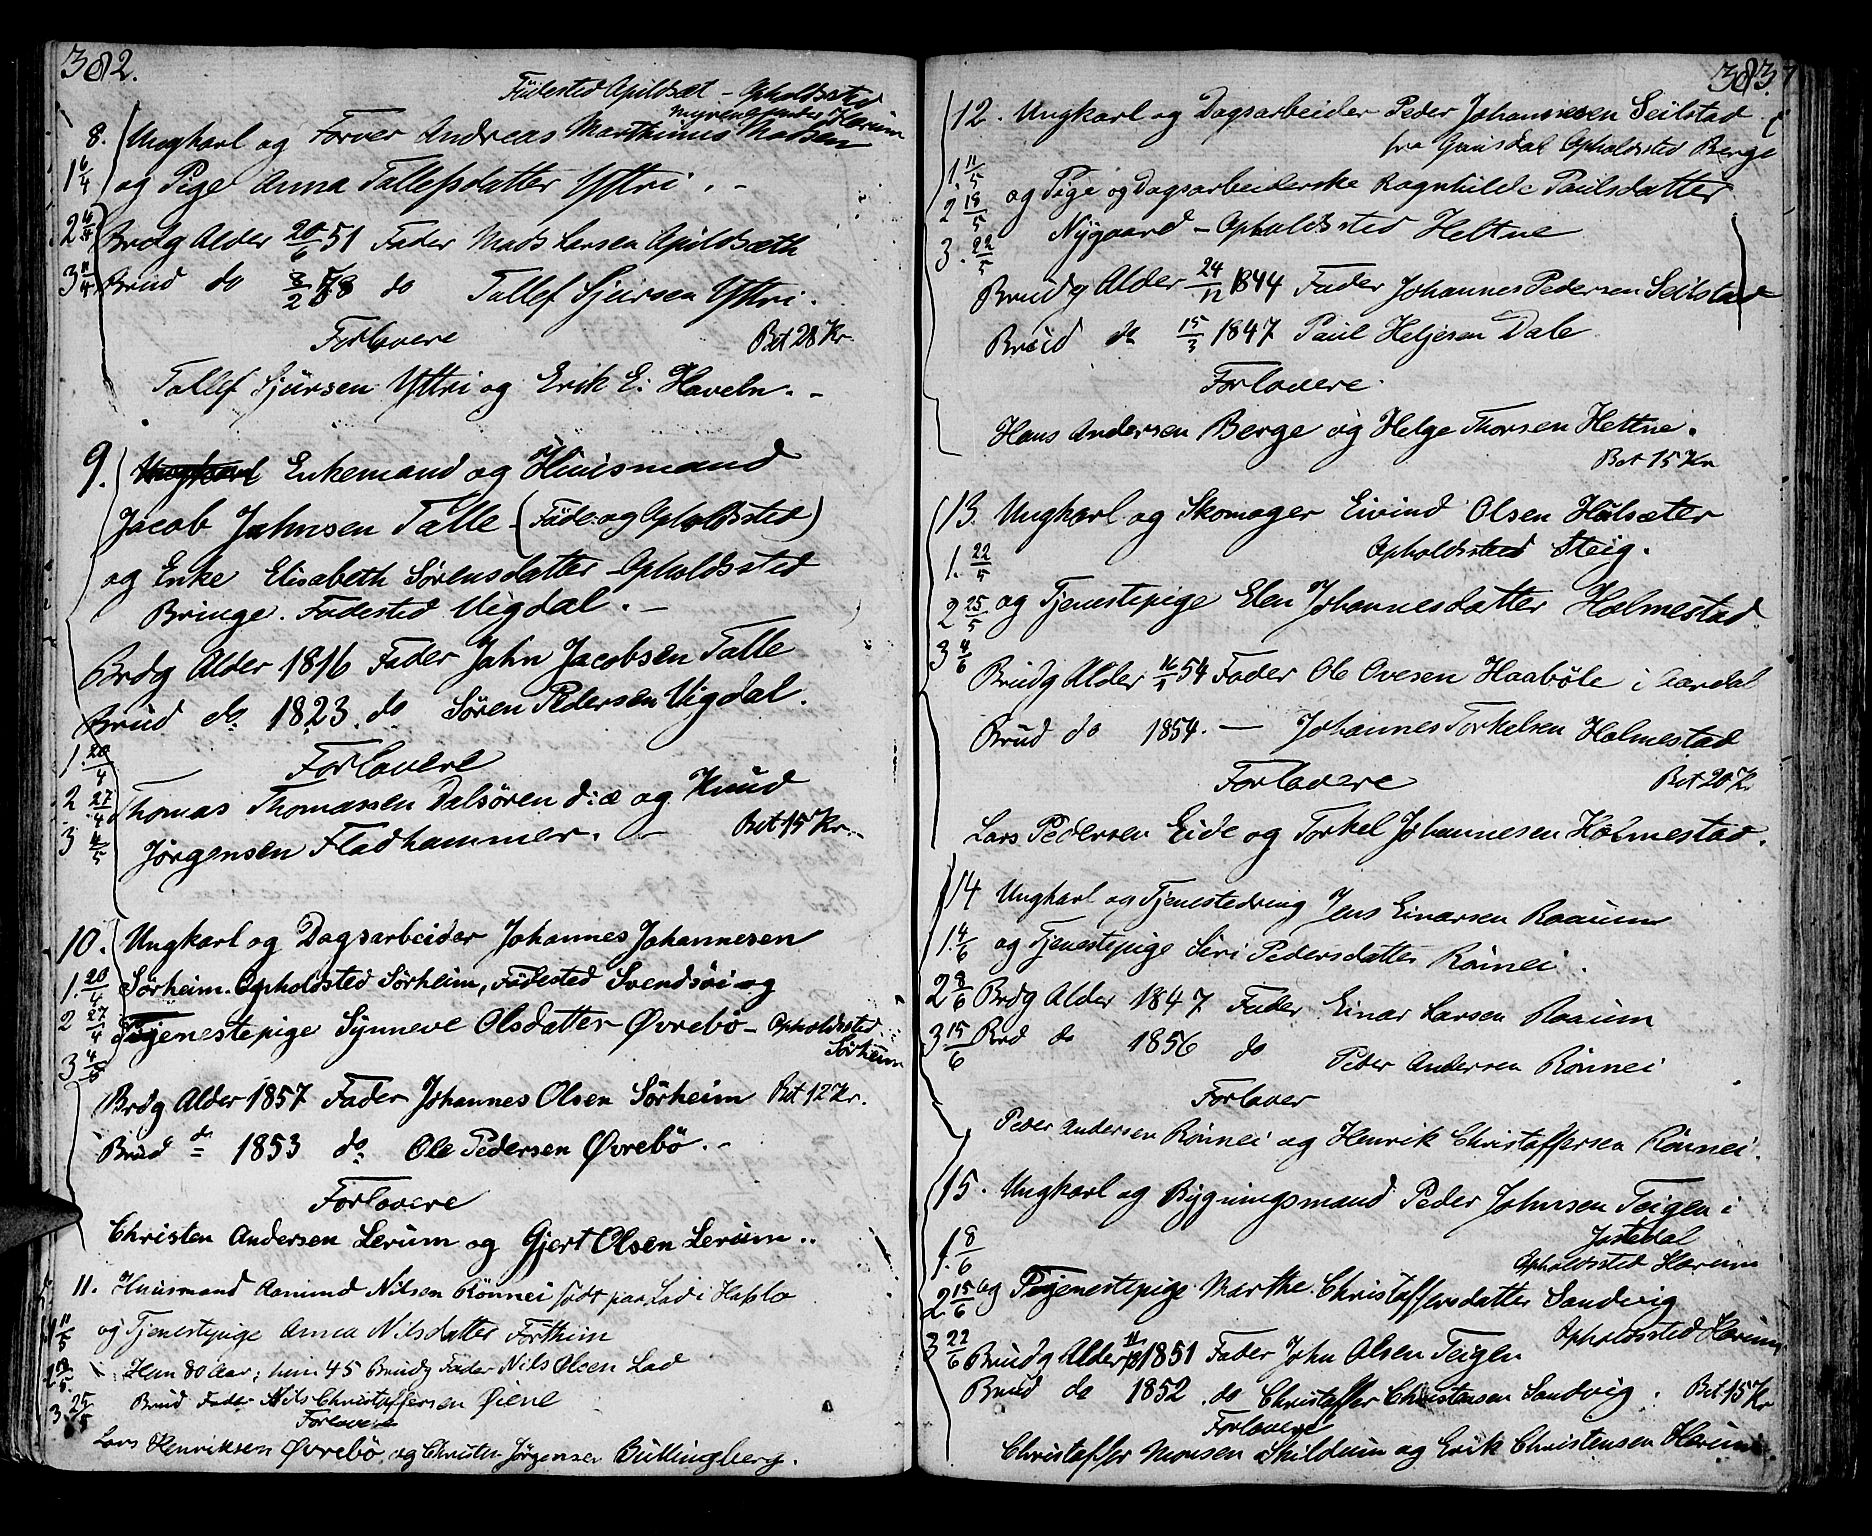 382.
Födested Apildsæt - Opholdssted
Havum
8. Ungkarl og Farver Andreas Marthinus Madsen
1 6/4 og Pige Anna Tollefsdatter Yttri. -
2
Brdg Alder 20/6 51 Fader Mads Larsen Apildsæth
3 11/4 Brud do 58 do Tollef Sjursen Yttri.
Forlovere Bet 28 Kr.
Tollef Sjursen Yttri og Erik E. Haveln. -
9. Ungkarl Enkemand og Huusmand
Jacob Johnsen Talle (Föde- og Opholdssted)
og Enke Elisabeth Sørensdatter - Opholdssted
Bringe. Födested Vigdal. -
Brdg Alder 1816 Fader John Jacobsen Talle
Brud do 1823. do Søren Pedersen Vigdal.
1. 20/4 Forlovere
2 27/4 Thomas Thomassen Dalsören d:æ og Knud
3 4/5 Jørgensen Fladhammer. - Bet 15 Kr. -
10. Ungkarl og Dagsarbeider Johannes Johannesen
1. 20/4 Sørheim. Opholdsted Sørheim, Födested Svendsöi og
2 27/4 Tjenestepige Synneve Olsdatter Øvrebö - Opholdssted
3 4/5 Sørheim
Brdg Alder 1857 Fader Johannes Olsen Sörheim Bet 12 Kr.
Brud do 1853 do Ole Pedersen Øvrebö. -
Forlovere
Christen Andersen Lerum og Gjert Olsen Lerum..
11. Huusmand Aamund Nilsen Rönnei födt paa Lad i Hafslo
1 11/5 og Tjenestepige Anna Nilsdatter Fortheim
2 18/5 Han 80 Aar, hun 45 Brudg Fader Nils Olsen Lad
Brud Fader Nils Christoffersen Øiene
3. 25/5 Forlovere
Lars Henriksen Øvrebö og Christen Jörgensen Bullingberg.
383
12. Ungkarl og Dagsarbeider Peder Johannesen Seilstad
fra Gausdal Opholdssted Berge
1. 11/5 og Pige og Dagsarbeiderske Ragnhilde Paulsdatter
2 18/5 Nygaard - Opholdssted Heltne
3. 22/5
Brudg Alder 24/12 1844 Fader Johannes Pedersen Seilstad
Brud do 15/3 1847 Paul Heljesen Dale
Forlovere
Hans Andersen Berge og Helge Thorsen Heltne.
Bet 15 Kr
13. Ungkarl og Skomager Eivind Olsen Hulsæter
1. 22/5 Opholdssted Steig.
2 25/5 og Tjenestepige Elen Johannesdatter Holmestad.
3 4/6
Brudg Alder 54 Fader Ole Ovesen Haaböle i Aardal
Brud do 1854. - Johannes Torkelsen Holmestad
Forlovere Bet 20 Kr
Lars Pedersen Eide og Torkel Johannesen Holmestad.
14 Ungkarl og Tjenestedreng Jens Einarsen Raaum
1. 4/6 og Tjenestepige Siri Pedersdatter Rönnei.
2 8/6 Brdg Alder 1847 Fader Einar Larsen Raaum
3 15/6 Brd do 1856 do Peder Andersen Rönnei
Forlover
Peder Andersen Rönnei og Henrik Christoffersen Rönnei.
15. Ungkarl og Bygningsmand Peder Johnsen Teigen i
Jostedal
1. 8/6 Opholdssted Havum
2 15/6 og Tjenestepige Marthe Christoffersdatter Sandvig
Opholdssted Havum
3 22/6 Brudg Alder 1851 Fader John Olsen Teigen
Brud do 1852 do Christoffer Christensen Sandvig. Bet 15 Kr
Forlovere
Christoffer Monsen Skildum og Erik Christensen Havum.